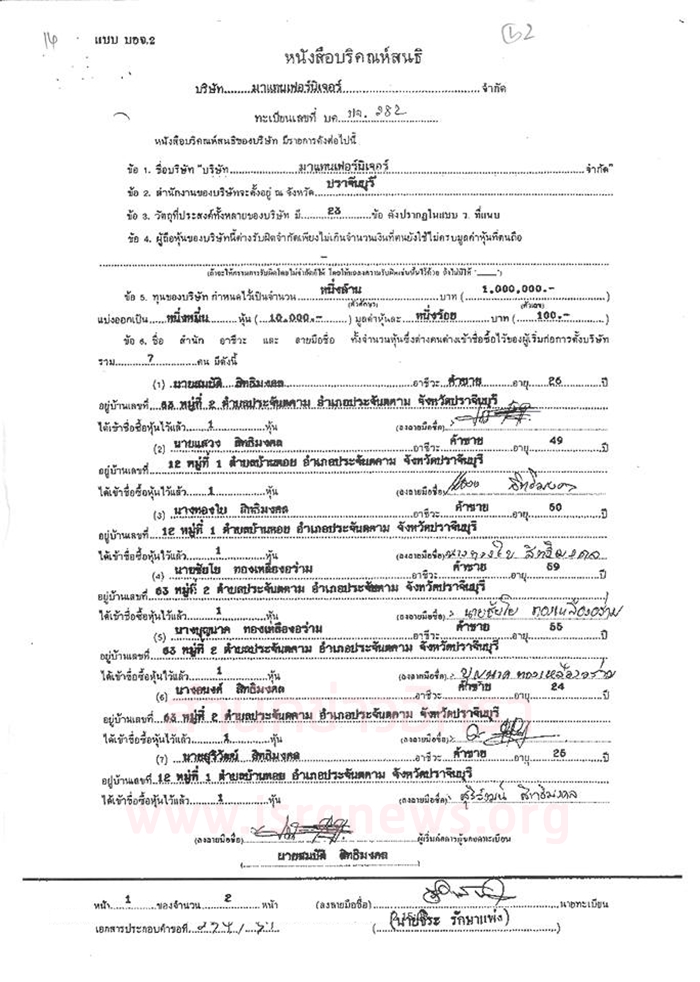 แบบ บอจ.2
หนังสือบริคณห์สนธิ
บริษัท........มาแทนเฟอร์นิเจอร์........จำกัด
ทะเบียนเลขที่ บค. ปจ. 282
หนังสือบริคณห์สนธิของบริษัท มีรายการดังต่อไปนี้
ข้อ 1. ชื่อบริษัท "บริษัท........มาแทนเฟอร์นิเจอร์........จำกัด"
ข้อ 2. สำนักงานของบริษัทจะตั้งอยู่ ณ จังหวัด ปราจีนบุรี
ข้อ 3. วัตถุที่ประสงค์ทั้งหลายของบริษัท มี........23........ข้อ ดังปรากฏในแบบ ว. ที่แนบ
ข้อ 4. ผู้ถือหุ้นของบริษัทนี้ต่างรับผิดจำกัดเพียงไม่เกินจำนวนเงินที่ตนยังใช้ไม่ครบมูลค่าหุ้นที่ตนถือ
-
ข้อ 5. ทุนของบริษัท กำหนดไว้เป็นจำนวน หนึ่งล้าน บาท (1,000,000.-)
(ตัวอักษร) (ตัวเลข)
แบ่งออกเป็น หนึ่งหมื่น หุ้น (10,000.-) มูลค่าหุ้นละ หนึ่งร้อย บาท (100.-)
ข้อ 6. ชื่อ สำนัก อาชีวะ และ ลายมือชื่อ ทั้งจำนวนหุ้นซึ่งต่างคนต่างเข้าชื่อซื้อไว้ของผู้เริ่มก่อการตั้งบริษัท
รวม 7 คน มีดังนี้
(1) นายสมบัติ สิทธิมงคล อาชีวะ ค้าขาย อายุ 26 ปี
อยู่บ้านเลขที่ 63 หมู่ที่ 2 ตำบลประจันตคาม อำเภอประจันตคาม จังหวัดปราจีนบุรี
ได้เข้าชื่อซื้อหุ้นไว้แล้ว 1 หุ้น (ลงลายมือชื่อ)
(2) นายแสวง สิทธิมงคล อาชีวะ ค้าขาย อายุ 49 ปี
อยู่บ้านเลขที่ 12 หมู่ที่ 1 ตำบลบ้านหอย อำเภอประจันตคาม จังหวัดปราจีนบุรี
ได้เข้าชื่อซื้อหุ้นไว้แล้ว 1 หุ้น (ลงลายมือชื่อ) แสวง สิทธิมงคล
(3) นางทองใบ สิทธิมงคล อาชีวะ ค้าขาย อายุ 50 ปี
อยู่บ้านเลขที่ 12 หมู่ที่ 1 ตำบลบ้านหอย อำเภอประจันตคาม จังหวัดปราจีนบุรี
ได้เข้าชื่อซื้อหุ้นไว้แล้ว 1 หุ้น (ลงลายมือชื่อ) นางทองใบ สิทธิมงคล
(4) นายชัยโย ทองเหลืองอร่าม อาชีวะ ค้าขาย อายุ 59 ปี
อยู่บ้านเลขที่ 63 หมู่ที่ 2 ตำบลประจันตคาม อำเภอประจันตคาม จังหวัดปราจีนบุรี
ได้เข้าชื่อซื้อหุ้นไว้แล้ว 1 หุ้น (ลงลายมือชื่อ) นายชัยโย ทองเหลืองอร่าม
(5) นางบุญนาค ทองเหลืองอร่าม อาชีวะ ค้าขาย อายุ 55 ปี
อยู่บ้านเลขที่ 63 หมู่ที่ 2 ตำบลประจันตคาม อำเภอประจันตคาม จังหวัดปราจีนบุรี
ได้เข้าชื่อซื้อหุ้นไว้แล้ว 1 หุ้น (ลงลายมือชื่อ) บุญนาค ทองเหลืองอร่าม
(6) นางอนงค์ สิทธิมงคล อาชีวะ ค้าขาย อายุ 24 ปี
อยู่บ้านเลขที่ 63 หมู่ที่ 2 ตำบลประจันตคาม อำเภอประจันตคาม จังหวัดปราจีนบุรี
ได้เข้าชื่อซื้อหุ้นไว้แล้ว 1 หุ้น (ลงลายมือชื่อ)
(7) นายสุริวัฒน์ สิทธิมงคล อาชีวะ ค้าขาย อายุ 25 ปี
อยู่บ้านเลขที่ 12 หมู่ที่ 1 ตำบลบ้านหอย อำเภอประจันตคาม จังหวัดปราจีนบุรี
ได้เข้าชื่อซื้อหุ้นไว้แล้ว 1 หุ้น (ลงลายมือชื่อ) สุริวัฒน์ สิทธิมงคล
www.isranews.org
(ลงลายมือชื่อ) ผู้เริ่มก่อการผู้ขอจดทะเบียน
นายสมบัติ สิทธิมงคล
หน้า 1 ของจำนวน 2 หน้า (ลงลายมือชื่อ) นายทะเบียน
เอกสารประกอบคำขอที่ (นายจิระ รักษาแพ่ง)